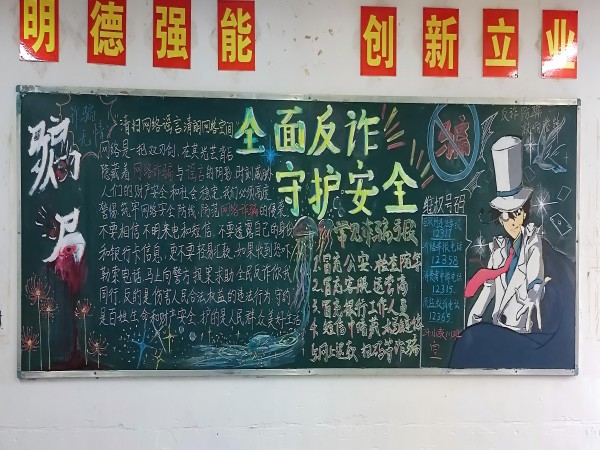 明德强能 创新立业
骗局
清扫网络谣言清朗网络空间
全面反诈
守护安全
网络是一把双刃剑,在其光芒背后
隐藏着网络诈骗与谣言的阴影,时刻威胁
人们的财产安全和社会稳定,我们必须高度
警惕,筑牢网络安全防线,防范网络诈骗的侵害
不要相信不明来电和短信,不要透露自己的身份
和银行卡信息,更不要轻易汇款,如果收到恐吓
勒索电话,马上向警方报案求助,全民反诈你我
同行,反的是伤害人民合法权益的违法行为,守的
是百姓生命和财产安全,护的是人民群众美好生活
常见诈骗手段
1.冒充公安 检查
2.冒充客服 退
3.冒充银行工作人员
4.短信中暗藏木马
5.网上退款 扫码等诈骗
骗
维权号码
12358
12315
12365